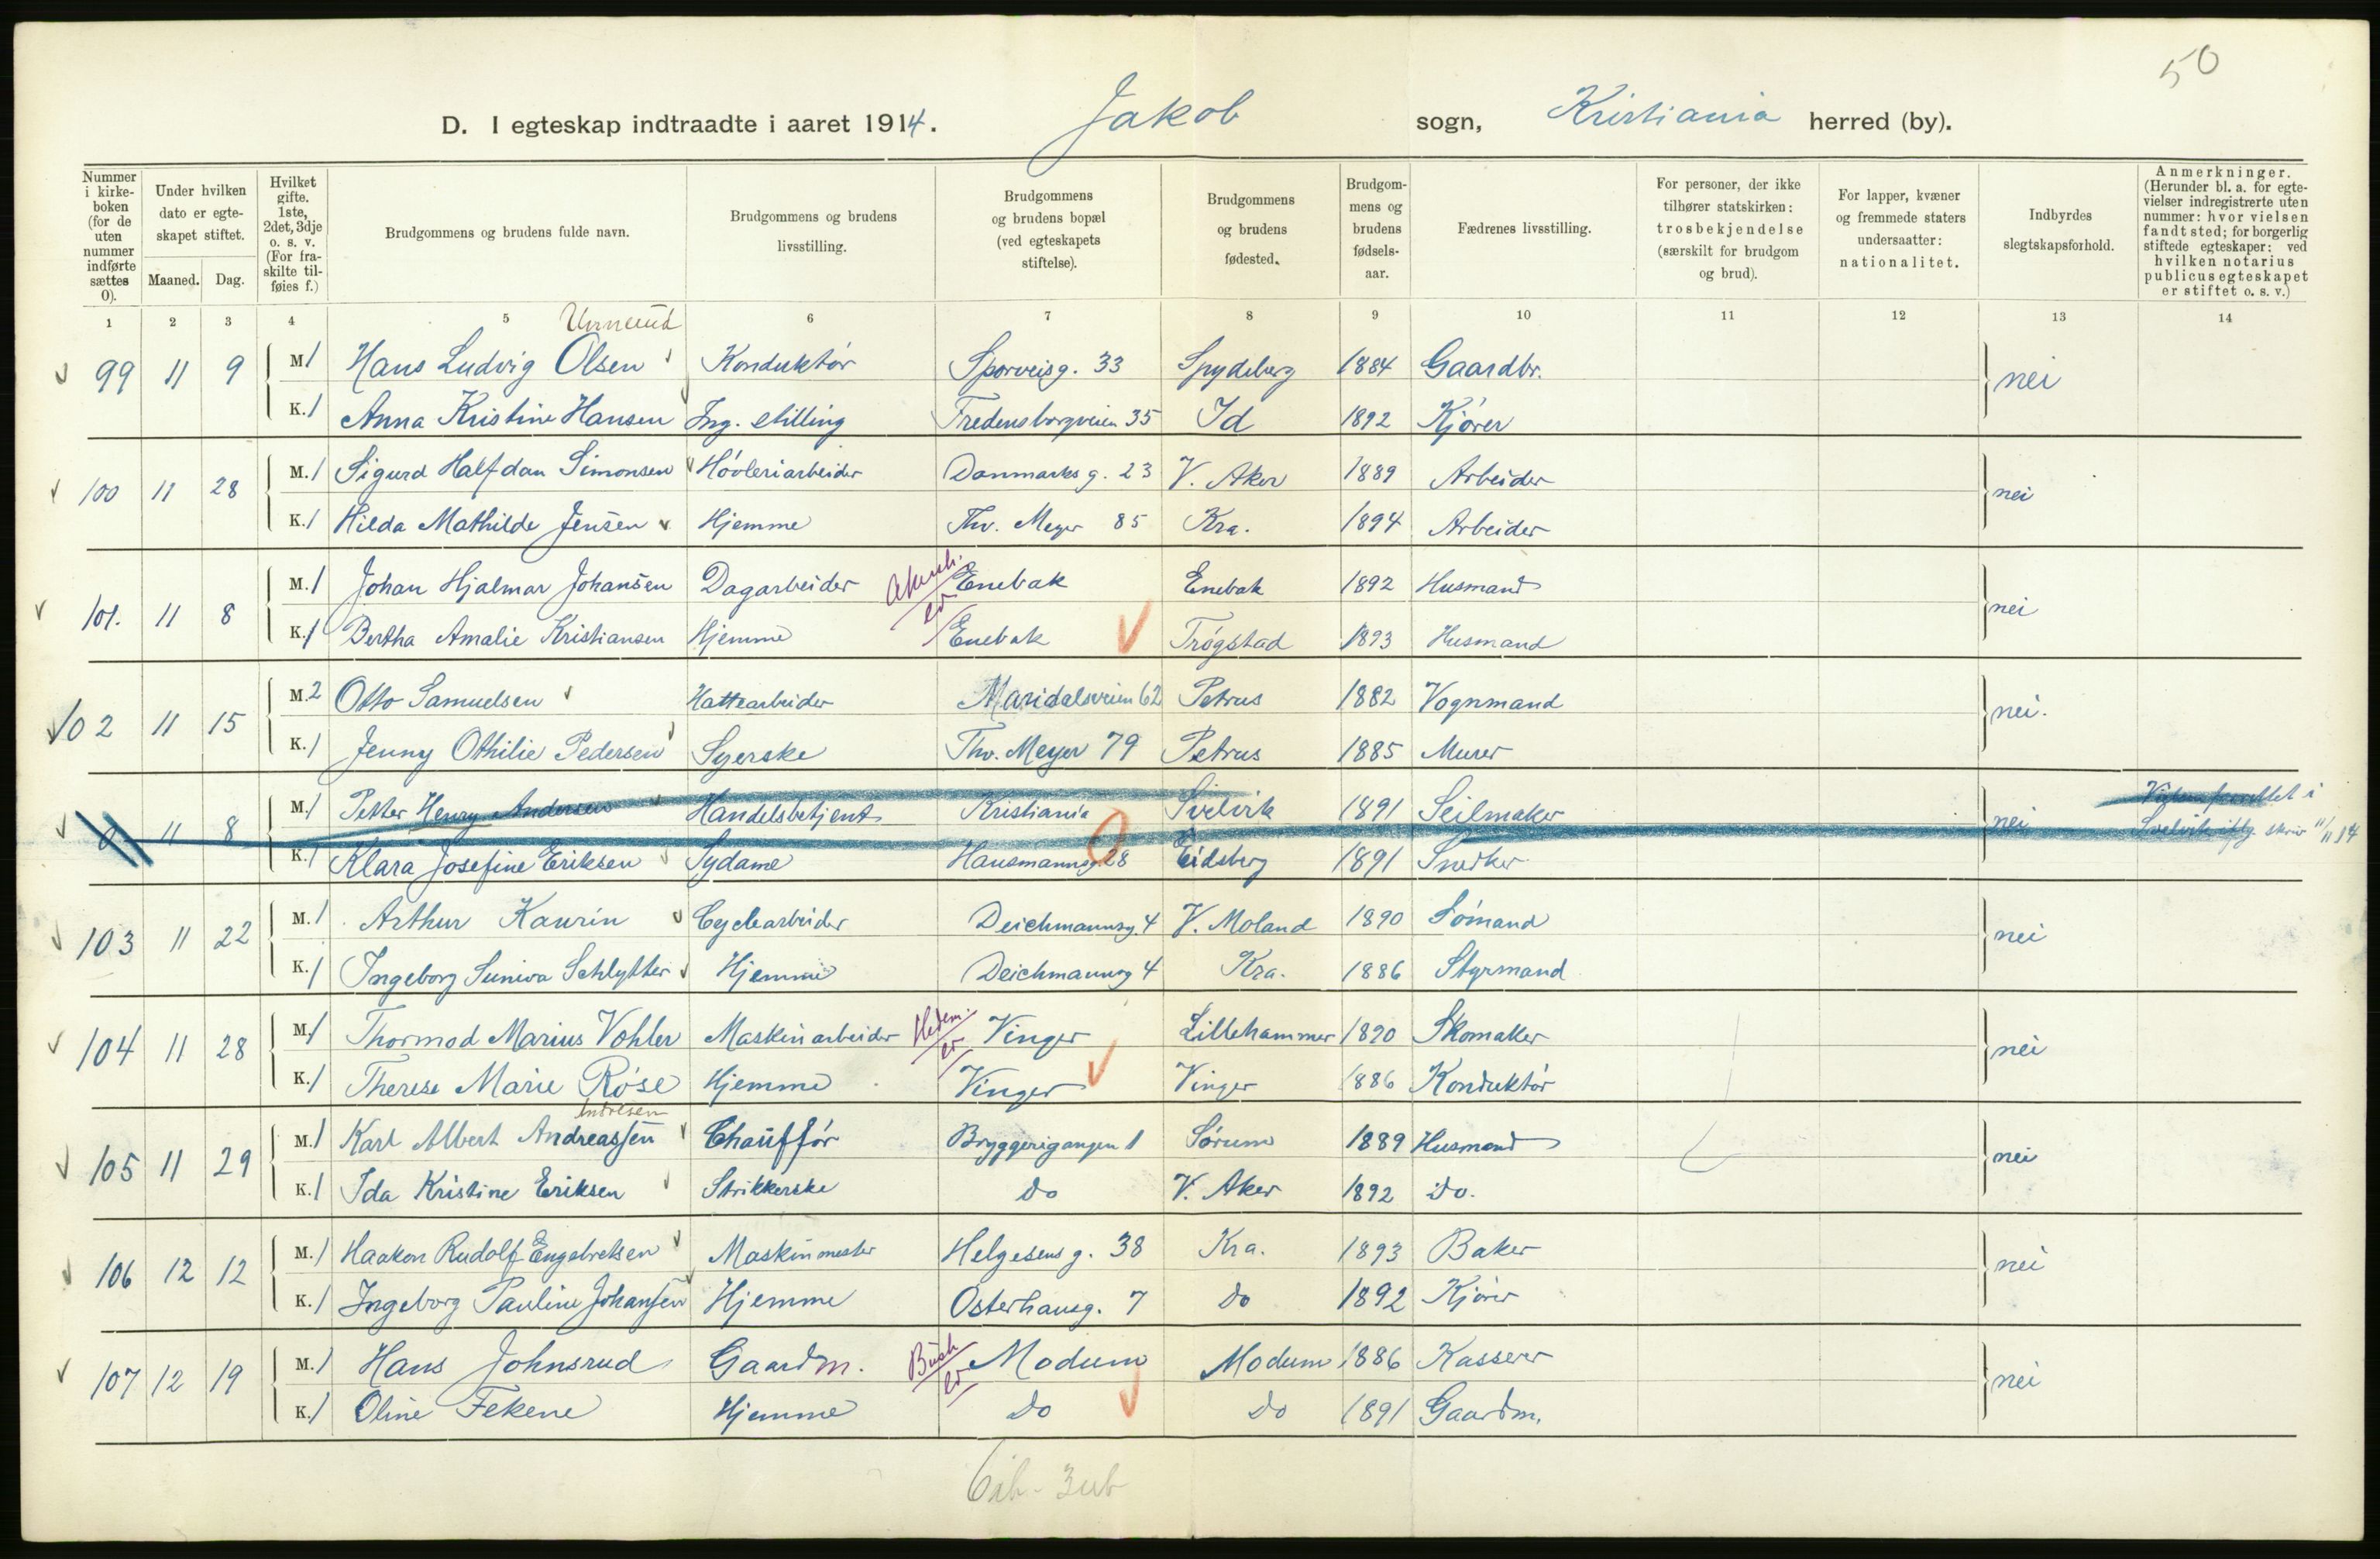 50
D. I egteskap indtraadte i aaret 1914. Jakob sogn, Kristiania herred (by).
Nummer i kirke-boken (for de uten nummer indførte sættes 0).
Under hvilken dato er egte-skapet stiftet.
Maaned. Dag.
Hvilket gifte. 1ste, 2det, 3dje o. s. v. (For fra-skilte til-føies f.)
Brudgommens og brudens fulde navn.
Brudgommens og brudens livsstilling.
Brudgommens og brudens bopæl (ved egteskapets stiftelse).
Brudgommens og brudens fødested.
Brudgom-mens og brudens fødsels-aar.
Fædrenes livsstilling.
For personer, der ikke tilhører statskirken: trosbekjendelse (særskilt for brudgom og brud).
For lapper, kvæner og fremmede staters undersaatter: nationalitet.
Indbyrdes slegtskapsforhold.
Anmerkninger. (Herunder bl. a. for egte-vielser indregistrerte uten nummer: hvor vielsen fandt sted; for borgerlig stiftede egteskaper: ved hvilken notarius publicus egteskapet er stiftet o. s. v.)
1 2 3 4 5 6 7 8 9 10 11 12 13 14
99 11 9 M. 1 Hans Ludvig Olsen Konduktör Sporveisg. 33 Spydeberg 1884 Gaardbr. nei
K. 1 Anna Kristine Hansen Ing. stilling Fredensborgveien 35 Id 1892 Kjörer
100 11 28 M. 1 Sigurd Halfdan Simonsen Hövleriarbeider Danmarks g. 23 V. Aker 1889 Arbeider nei
K. 1 Hilda Mathilde Jensen Hjemme Thv. Meyer 85 Kra. 1894 Arbeider
101. 11 8 M. 1 Johan Hjalmar Johansen Dagarbeider Enebak Enebak 1892 Husmand nei
K. 1 Bertha Amalie Kristiansen Hjemme Enebak Trögstad 1893 Husmand
102 11 15 M. 2 Otto Samuelsen Hattearbeider Maridalsveien 62 Petrus 1882 Vognmand nei.
K. 1 Jenny Othilie Pedersen Syerske Thv. Meyer 79 Petrus 1885 Murer
0 11 8 M. 1 Petter Henry Andersen Handelsbetjent Kristiania Svelvik 1891 Seilmaker nei
K. 1 Klara Josefine Eriksen Sydame Hausmannsg 28 Eidsberg 1891 Snedker
103 11 22 M. 1 Arthur Kaurin Cyclearbeider Deichmannsg. 4 V. Moland 1890 Sömand nei
K. 1 Ingeborg Suniva Schlytter Hjemme Deichmannsg 4 Kra. 1886 Styrmand
104 11 28 M. 1 Thormod Marius Vohler Maskinarbeider Hedem. Vinger Lillehammer 1890 Skomaker nei
K. 1 Therese Marie Röse Hjemme Vinger Vinger 1886 Konduktör
105 11 29 M. 1 Karl Albert Andreassen Chaufför Bryggerigangen 1 Sörum 1889 Husmand nei
K. 1 Ida Kristine Eriksen Strikkerske do V. Aker 1892 do.
106 12 12 M. 1 Haakon Rudolf Engebretsen Maskinmester Helgesens g. 38 Kra. 1893 Baker nei
K. 1 Ingeborg Pauline Johansen Hjemme Osterhausg. 7 do 1892 Kjörer
107 12 19 M. 1 Hans Johnsrud Gaardm. Busk Modum Modum 1886 Kasserer nei
K. 1 Oline Fekene Hjemme do do 1891 Gaardm.